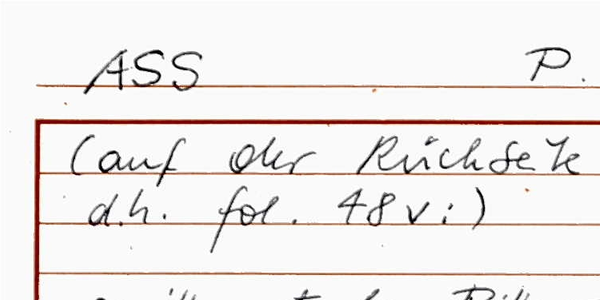 ASS P.
(auf der Rückseite
d.h. fol. 48v:)